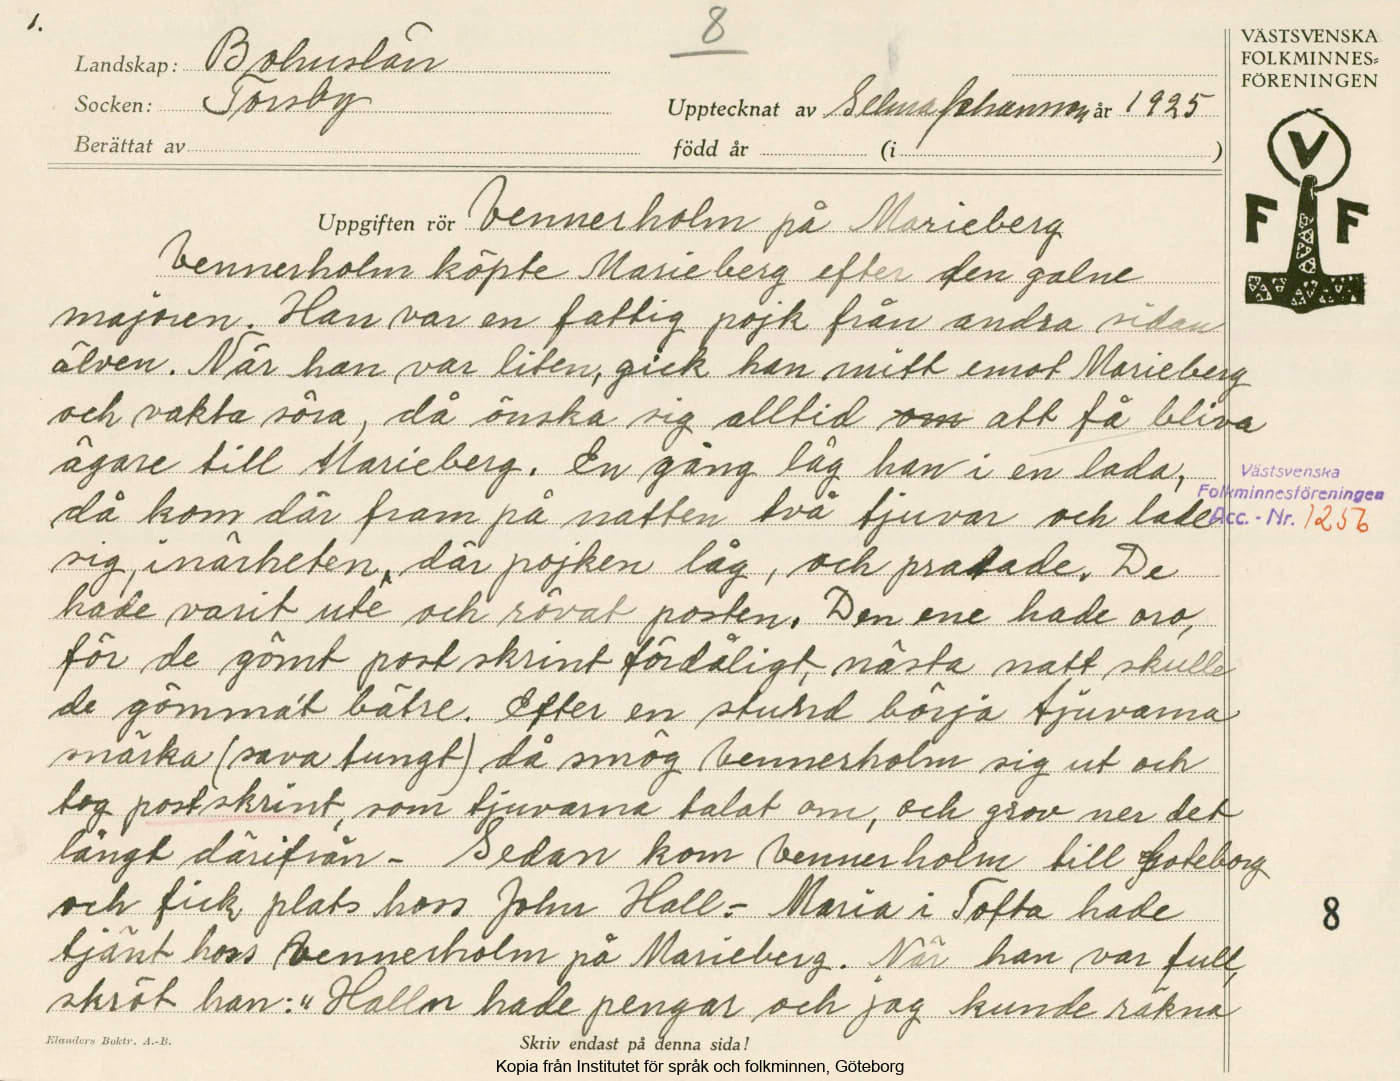 1.
8
VÄSTSVENSKA
FOLKMINNES=
FÖRENINGEN
V
F F
Landskap: Bohuslän
Socken: Torsby
Upptecknat av Selma Johansson år 1925
Berättat av
född år (i )
Uppgiften rör Vennerholm på Marieberg
Vennerholm köpte Marieberg efter den galne
majoren. Han var en fattig pojk från andra sidan
älven. När han var liten, gick han mitt emot Marieberg
och vakta söra, då önska sig alltid om att få bliva
ägare till Marieberg. En gång låg han i en lada,
då kom där fram på natten två tjuvar och lade
sig, i närheten, där pojken låg, och pratade. De
hade varit ute och rövat posten. Den ene hade oro,
för de gömt postskrint för dåligt, nästa natt skulle
de gömma't bätre. Efter en stund börja tjuvarna
snärka (sova tungt) då smög Vennerholm sig ut och
tog postskrint, som tjuvarna talat om, och grov ner det
långt därifrån - Sedan kom Vennerholm till Göteborg
och fick plats hoss John Hall.- Maria i Tofta hade
tjänt hoss Vennerholm på Marieberg. När han var full,
skröt han: "Halln hade pengar och jag kunde räkna
Västsvenska
Folkminnesföreningen
Acc. - Nr. 1256
8
Elanders Boktr. A.-B.
Skriv endast på denna sida!
Kopia från Institutet för språk och folkminnen, Göteborg